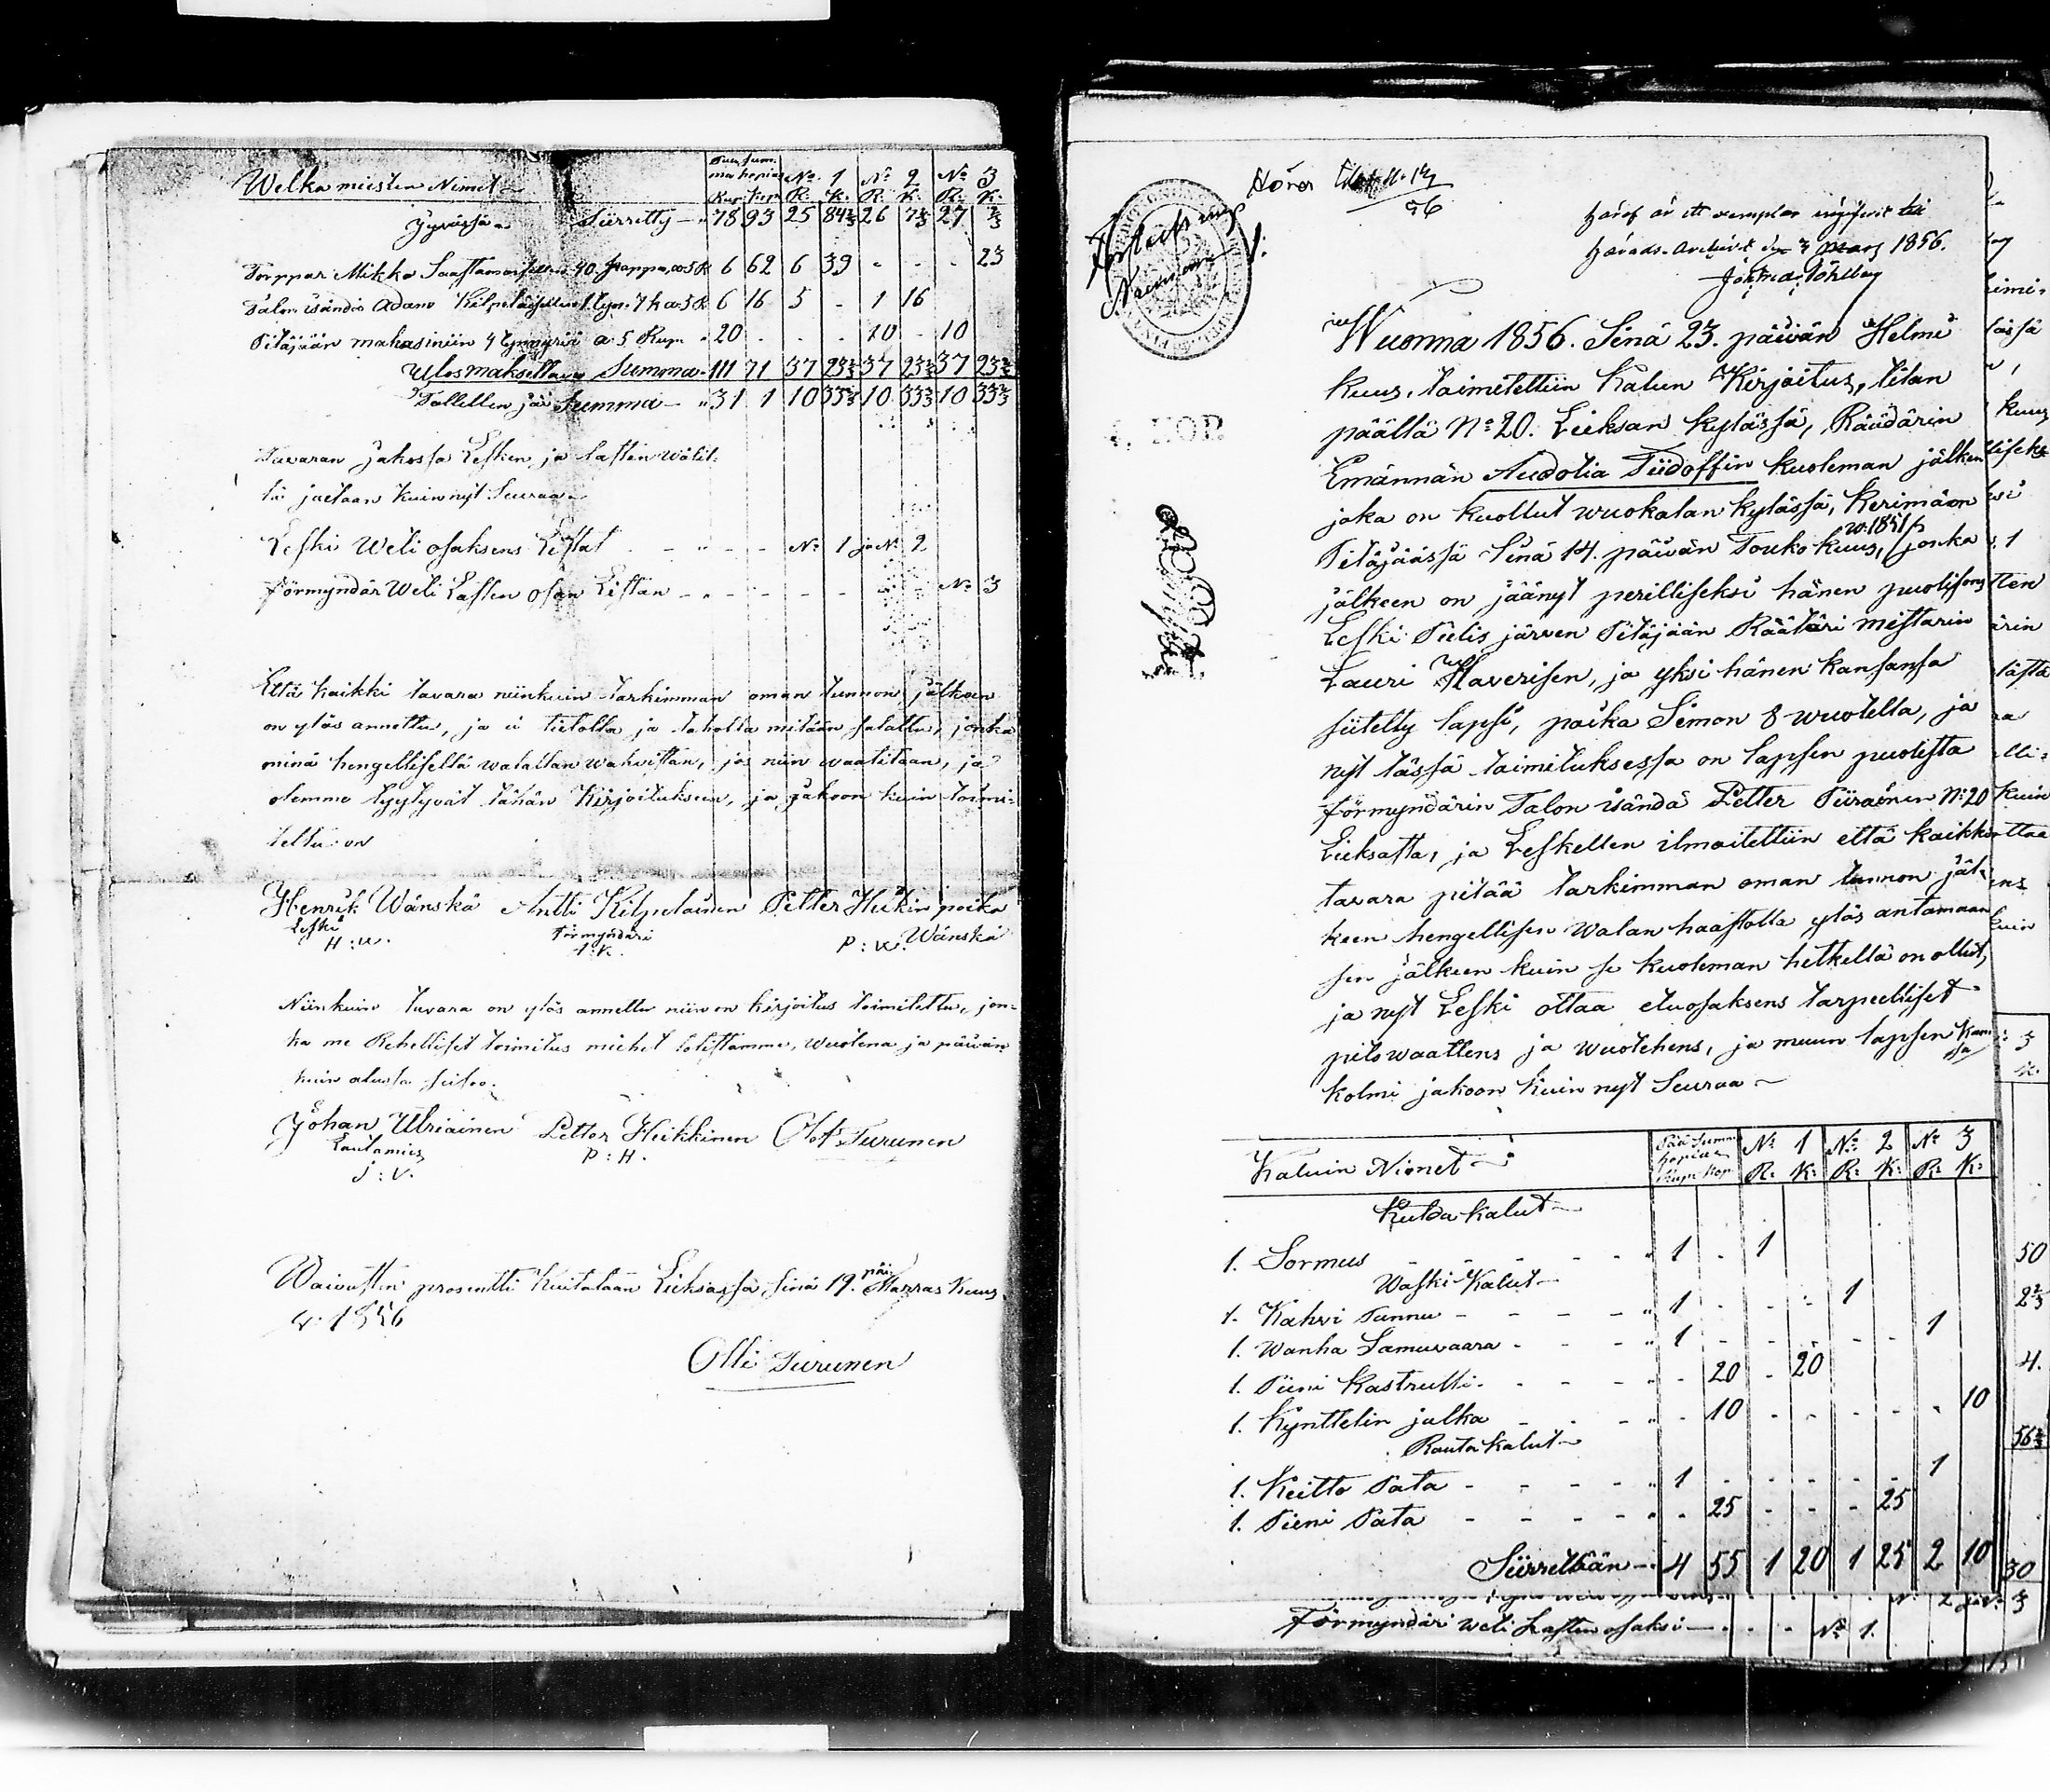 Welka miesten Nimet
Pää Sum-
ma hopias No 1 No 2 No 3
Rup. Kop. R. K. R. K. R. K.
Jyvässä Siirretty 78 93 25 84 2/3 26 7 2/3 27 2/3
Torppar Mikko Saastamoiselle 40 kappa, a 5 R 6 62 6 39 - - - 23
Talon isändä Adam Kilpeläisellen 1 tyn. 7 k a 5 R 6 16 5 - 1 16
Pitäjään makasiniin 4 tynnyriä a 5 Rup. 20 - - - 10 - 10
Ulosmaksettava Summa 111 71 37 23 2/3 37 23 2/3 37 23 2/3
Tallellen jää Summa 31 1 10 33 2/3 10 33 2/3 10 33 2/3
Tavaran Jakossa Lesken ja lasten wälil-
lä jaetaan kuin nyt Seuraa
Leski Weli osaksens Listat No 1 ja No 2
förmyndär Weli Lasten osan Listan No 3
Että kaikki tavara niinkuin tarkimman oman tunnon jälkeen
on ylös annettu, ja ei tietolla ja taholla mitään salattu, jonka
minä hengellisellä walallan wahvistan, jos niin waatitaan, ja
olemme tyytyväit tähän Kirjoitukseen, ja jakoon kuin toimi-
tettu on
Henrik Wänskä Antti Kilpeläinen Petter Heikin poika
Leski Förmyndäri Wänskä
H: w. A: K. P: w.
Niinkuin tavara on ylös annettu niin on kirjoitus toimitettu, jon-
ka me Rehelliset toimitus miehet todistamme, wuotena ja päivän
kuin alussa seisoo.
Johan Uliainen Petter Heikkinen Olof Turunen
Lautamies P: H.
J: U.
Waivasten prosentti Kuitataan Lieksassa sinä 19. päi. Marras Kuus
w: 1856
Olli Turunen
Häraf är ett exemplar ingifvit till
Härads-Archivet den 3 Mars 1856.
Wuonna 1856. Sinä 23. päivän Helmi
kuus, toimitettiin Kalun Kirjoitus, tilan
päällä No 20. Lieksan kylässä, Räädärin
Emännän Audotia Tiidoffin kuoleman jälken
joka on kuollut wuokalan kylässä, Kerimäon
Pitäjäässä Sinä 14. päivän Touko kuus, w. 1851, jonka
jälkeen on jäänyt perilliseksi hänen puolisons
Leski Pielis järven Pitäjään Räätäri mestarin
Lauri Haverisen, ja yksi hänen kansansa
siitetty lapsi, poika Simon 8 wuotella, ja
nyt tässä toimituksessa on lapsen puolesta
förmyndärin Talon isändä Petter Piirainen No 20
Lieksasta, ja Leskellen ilmoitettiin että kaikki
tavara pitää tarkimman oman tunnon jäl-
keen hengellisen Walan haastolla ylös antamaan
sen jälkeen kuin se kuoleman hetkellä on ollut,
ja nyt Leski ottaa etuosaksens tarpeelliset
pito waattens ja wuotehens, ja muun lapsen kans-
sa
kolmi jakoon kuin nyt Seuraa
Kaluin Nimet Pää Summa hopias Rup. Kop. No 1 R: K: No 2 R: K: No 3 R: K:
Kulda kalut
1. Sormus 1 - 1
Waski Kalut
1. Kahvi Pannu 1 - - - 1
1. Wanha Samuvaara 1 - - - - - 1
1. Pieni Kastrulli - 20 - 20
1. Kynttelin jalka - 10 - - - - - 10
Rauta kalut
1. Keitto Pata 1 - - - - - 1
1. Pieni Pata - 25 - - - 25
Siirretään 4 55 1 20 1 25 2 10
Förmyndäri weli Lasten osaksi No 1.